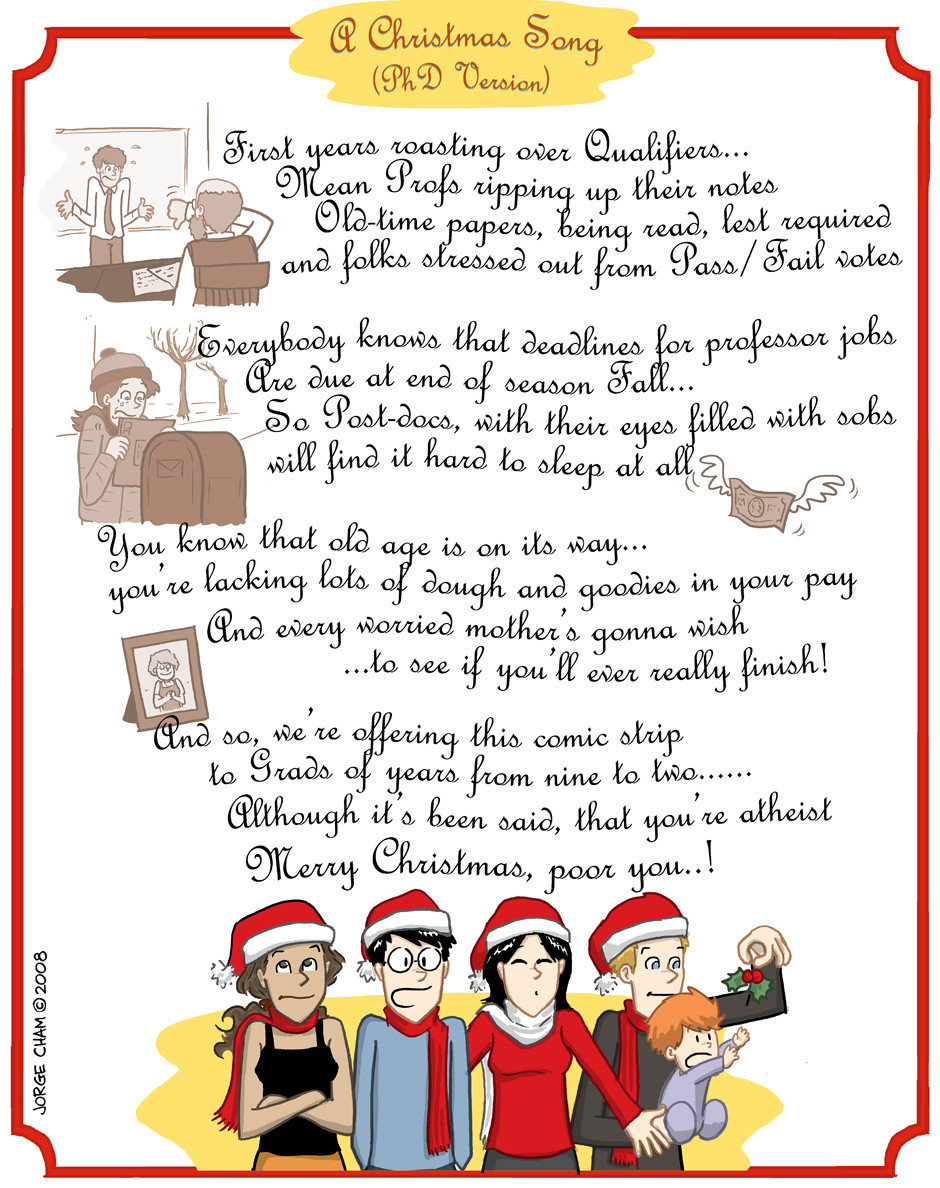 A Christmas Song
(PhD Version)
First years roasting over Qualifiers...
Mean Profs ripping up their notes
Old-time papers, being read, lest required
and folks stressed out from Pass/Fail votes
Everybody knows that deadlines for professor jobs
Are due at end of season Fall...
So Post-docs, with their eyes filled with sobs
will find it hard to sleep at all
You know that old age is on its way...
you're lacking lots of dough and goodies in your pay
And every worried mother's gonna wish
...to see if you'll ever really finish!
And so, we're offering this comic strip
to Grads of years from nine to two......
Although it's been said, that you're atheist
Merry Christmas, poor you..!
JORGE CHAM ©2008